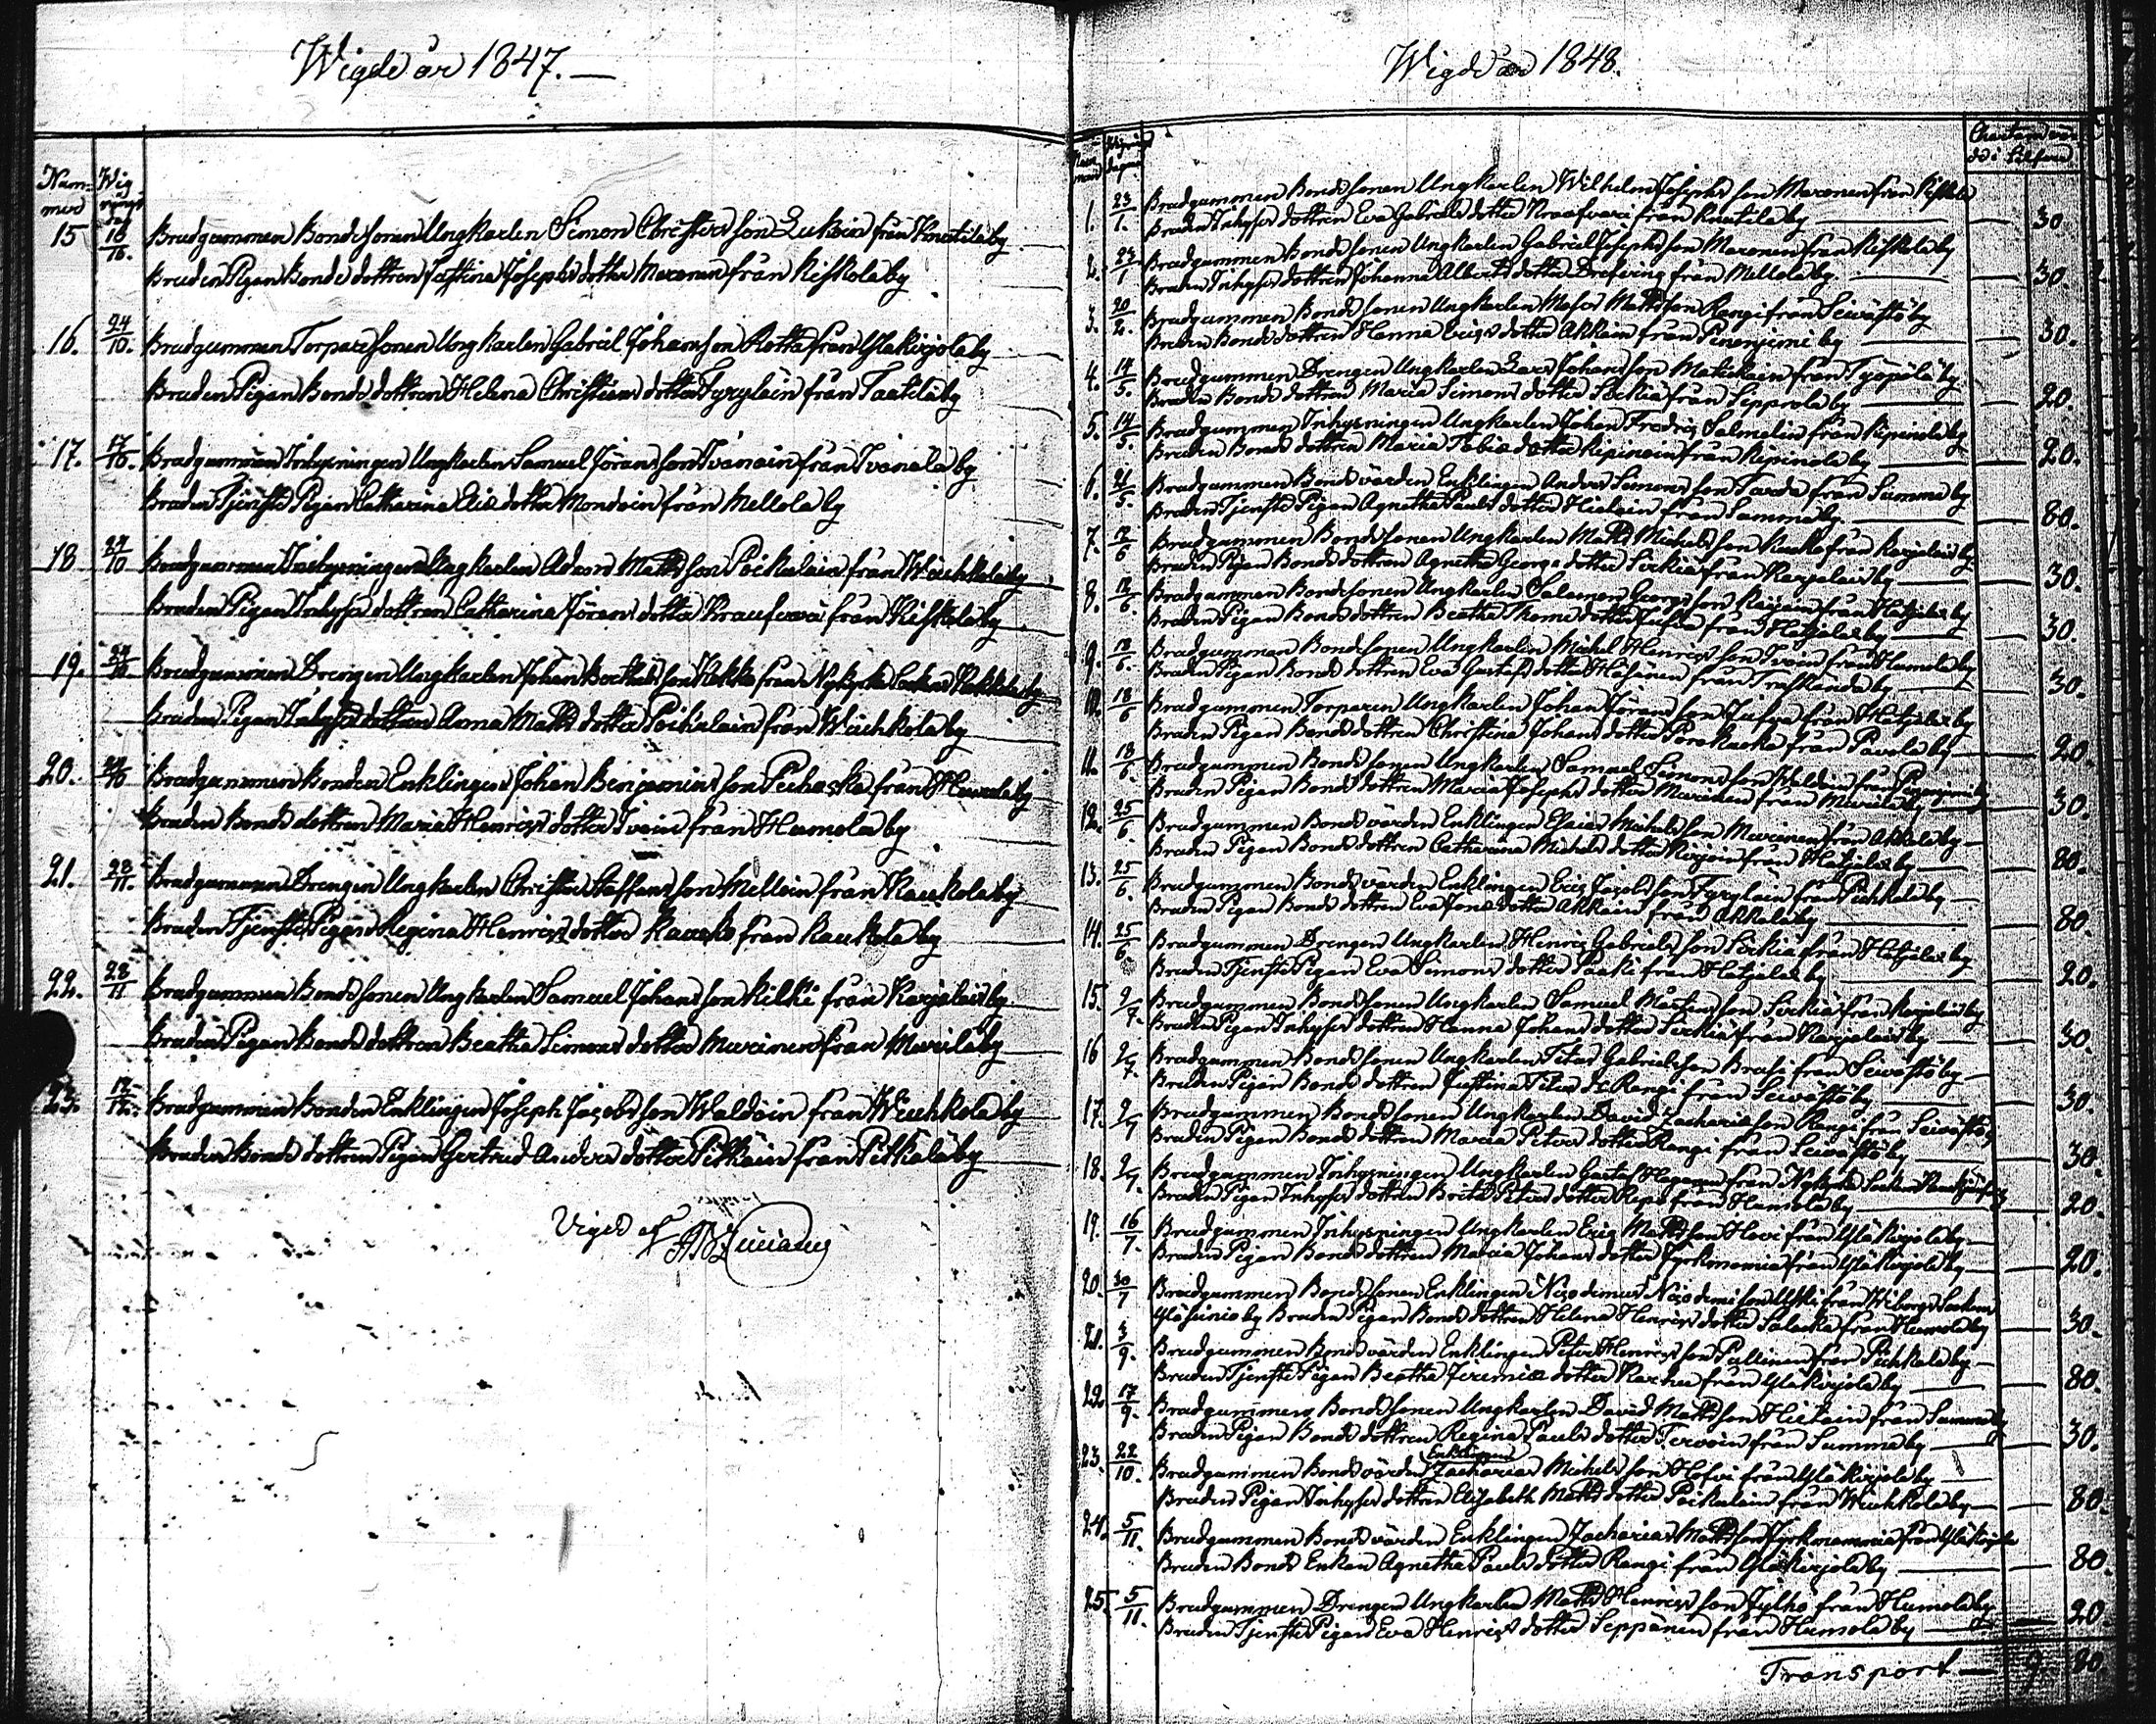 Wigde år 1847.
Num-
mer
Wig
nings
dag
15 18/10. Brudgummen Bondesonen Ungkarlen Simon Christersson Lukkin från Knutila by
Bruden Pigan Bondedottren Justina Josephsdotter Moronen från Kiskola by
16. 24/10. Brudgummen Torparesonen Ungkarlen Gabriel Johansson Rotta från Yläkirjola by
Bruden Pigan Bondedottren Helena Christiansdotter Tyryläin från Taatila by
17. 17/10. Brudgummen Inhysningen Ungkarlen Samuel Jöransson Ivanain från Ivanala by
Bruden Tjenste Pigan Catharina Eliedotter Mondoin från Mellola by
18 24/10 Brudgummen Inhysningen Ungkarlen Adam Mattsson Poikelain från Wiuhkola by
Bruden Pigan Inhysesdottren Catharina Jöransdotter från Kiskola by
19. 24/10 Brudgummen Drengen Ungkarlen Johan Bertelsson från Nykyrka Socken by
Bruden Pigan Inhysesdottren Anna Mattsdotter Poikelain från Wiuhkola by
20. 24/10 Brudgummen Bonden Enklingen Johan Benjaminsson från Humola by
Bruden Bondedottren Maria Henricsdotter Ivoin från Humola by
21. 28/11. Brudgummen Drengen Ungkarlen Christer Staffansson Melloin från Kaukola by
Bruden Tjenste Pigan Regina Henricsdotter Kauko från Kaukola by
22. 28/11 Brudgummen Bondesonen Ungkarlen Samuel Johansson Kilki från Karjalais by
Bruden Pigan Bondedottren Beatha Simonsdotter Murinen från Murila by
23. 12/12. Brudgummen Bonden Enklingen Joseph Jacobsson Waldoin från Wiuhkola by
Bruden Bondedottren Pigan Gertrud Andersdotter Pitkäin från Pitkälä by
Viged af
Wigde år 1848.
Num
mer
Wignings
dagen
1. 23/1. Brudgummen Bondesonen Ungkarlen Wilhelm Josephsson Moronen från Kiskola
Bruden Inhysesdottren Eva Gabrielsdotter från Knutila by 30
2. 23/1 Brudgummen Bondesonen Ungkarlen Gabriel Josephsson Moronen från Kiskola by
Bruden Inhysesdottren Johanna Albertsdotter från Mellola by 30.
3. 20/2. Brudgummen Bondesonen Ungkarlen Moses Mattsson Rangi från Seivästö by
Bruden Bondedottren Hanna Ericsdotter Akkain från Penenjemi by 30.
4. 14/5. Brudgummen Drengen Ungkarlen Lars Johansson Matikain från Tyopölä by
Bruden Bondedottren Maria Simonsdotter Sirkiä från Sipprola by 20.
5. 14/5. Brudgummen Inhysningen Ungkarlen Johan Fredric Salmelin från Kipinola by
Bruden Bondedottren Maria Tobiedotter Kipinoin från Kipinola by 20.
6. 21/5. Brudgummen Bondevärden Enklingen Anders Simonsson Tarde från Summa by
Bruden Tjenste Pigan Agnetha Paulsdotter Hietain från Summa by 80.
7. 12/6 Brudgummen Bondesonen Ungkarlen Matts Michelsson från Karjalais by
Bruden Pigan Bondedottren Agnetha Georgsdotter Sirkiä från Karjalais by 30.
8. 12/6. Brudgummen Bondesonen Ungkarlen Salomon Georgsson från Hatjalax by
Bruden Pigan Bondedottren Beatha Thomedotter från Hatjalax by 30.
9. 12/6. Brudgummen Bondesonen Ungkarlen Michel Henricsson Ivoin från Humola by
Bruden Pigan Bondedottren Eva Gustafsdotter Häsänen från Träskända by 30.
10. 18/6 Brudgummen Torparen Ungkarlen Johan Jöransson från Hatjalax by
Bruden Pigan Bondedottren Christina Johansdotter från Pavola by 20.
11. 18/6. Brudgummen Bondesonen Ungkarlen Samuel Simonsson Waldoin från Penenjemi by
Bruden Pigan Bondedottren Maria Josephsdotter Murinen från Murila by 30.
12. 25/6 Brudgummen Bondevärden Enklingen Esaias Michelsson Murinen från Akkala by
Bruden Pigan Bondedottren Catharina Michelsdotter från Hatjalax by 80.
13. 25/6. Brudgummen Bondevärden Enklingen Eric Jacobsson Tyryläin från Pihkala by
Bruden Pigan Bondedottren Eva Jonedotter Akkain från Akkala by 80.
14. 25/6. Brudgummen Drengen Ungkarlen Henric Gabrielsson Sirkiä från Hatjalax by
Bruden Tjenste Pigan Eva Simonsdotter Paaki från Hatjalax by 20.
15. 2/7. Brudgummen Bondesonen Ungkarlen Samuel Mårtensson Sirkiä från Karjalais by
Bruden Pigan Inhysesdottren Hanna Johansdotter Sirkiä från Karjalais by 30.
16 2/7. Brudgummen Bondesonen Ungkarlen Peter Gabrielsson Brusi från Seivästö by
Bruden Pigan Bondedottren Justina Peters dr Rangi från Seivästö by 30.
17. 2/7 Brudgummen Bondesonen Ungkarlen David Zachariesson Rangi från Seivästö by
Bruden Pigan Bondedottren Maria Petersdotter Rangi från Seivästö by 30.
18. 2/7. Brudgummen Inhysningen Ungkarlen Gustaf Hagman från Nykyrka Socken
Bruden Pigan Inhysesdottren Brita Petersdotter Repo från Humola by 20.
19. 16/7. Brudgummen Inhysningen Ungkarlen Eric Mattsson Hovi från Yläkirjola by
Bruden Pigan Bondedottren Maria Johansdotter från Yläkirjola by 20.
20. 30/7 Brudgummen Bondesonen Enklingen Nicodemus Nicodemisson från Wiborgs Socken
Bruden Pigan Bondedottren Helena Henricsdotter från Humola by 30.
21. 3/9. Brudgummen Bondevärden Enklingen Peter Henricsson Pullinen från Pihkala by
Bruden Tjenste Pigan Beatha Jeremiædotter Karhu från Yläkirjola by 80.
22. 17/9. Brudgummen Bondesonen Ungkarlen David Mattsson Hietain från Summa by
Bruden Pigan Bondedottren Regina Paulsdotter Tervoin från Summa by 30.
23. 22/10. Brudgummen Bondevärden Enklingen Zacharias Michelsson Hofvi från Yläkirjola by
Bruden Pigan Inhysesdottren Elisabeth Mattsdotter Poikelain från Wiuhkola by 80.
24. 5/11. Brudgummen Bondevärden Enklingen Zacharias Mattsson från Yläkirjola
Bruden Bonde Enkan Agnetha Paulsdotter Rangi från Yläkirjola by 80
25. 5/11. Brudgummen Drengen Ungkarlen Matts Henricsson Jylhö från Humola by
Bruden Tjenste Pigan Eva Henricsdotter Seppänen från Humola by 20
Transport 9. 80.